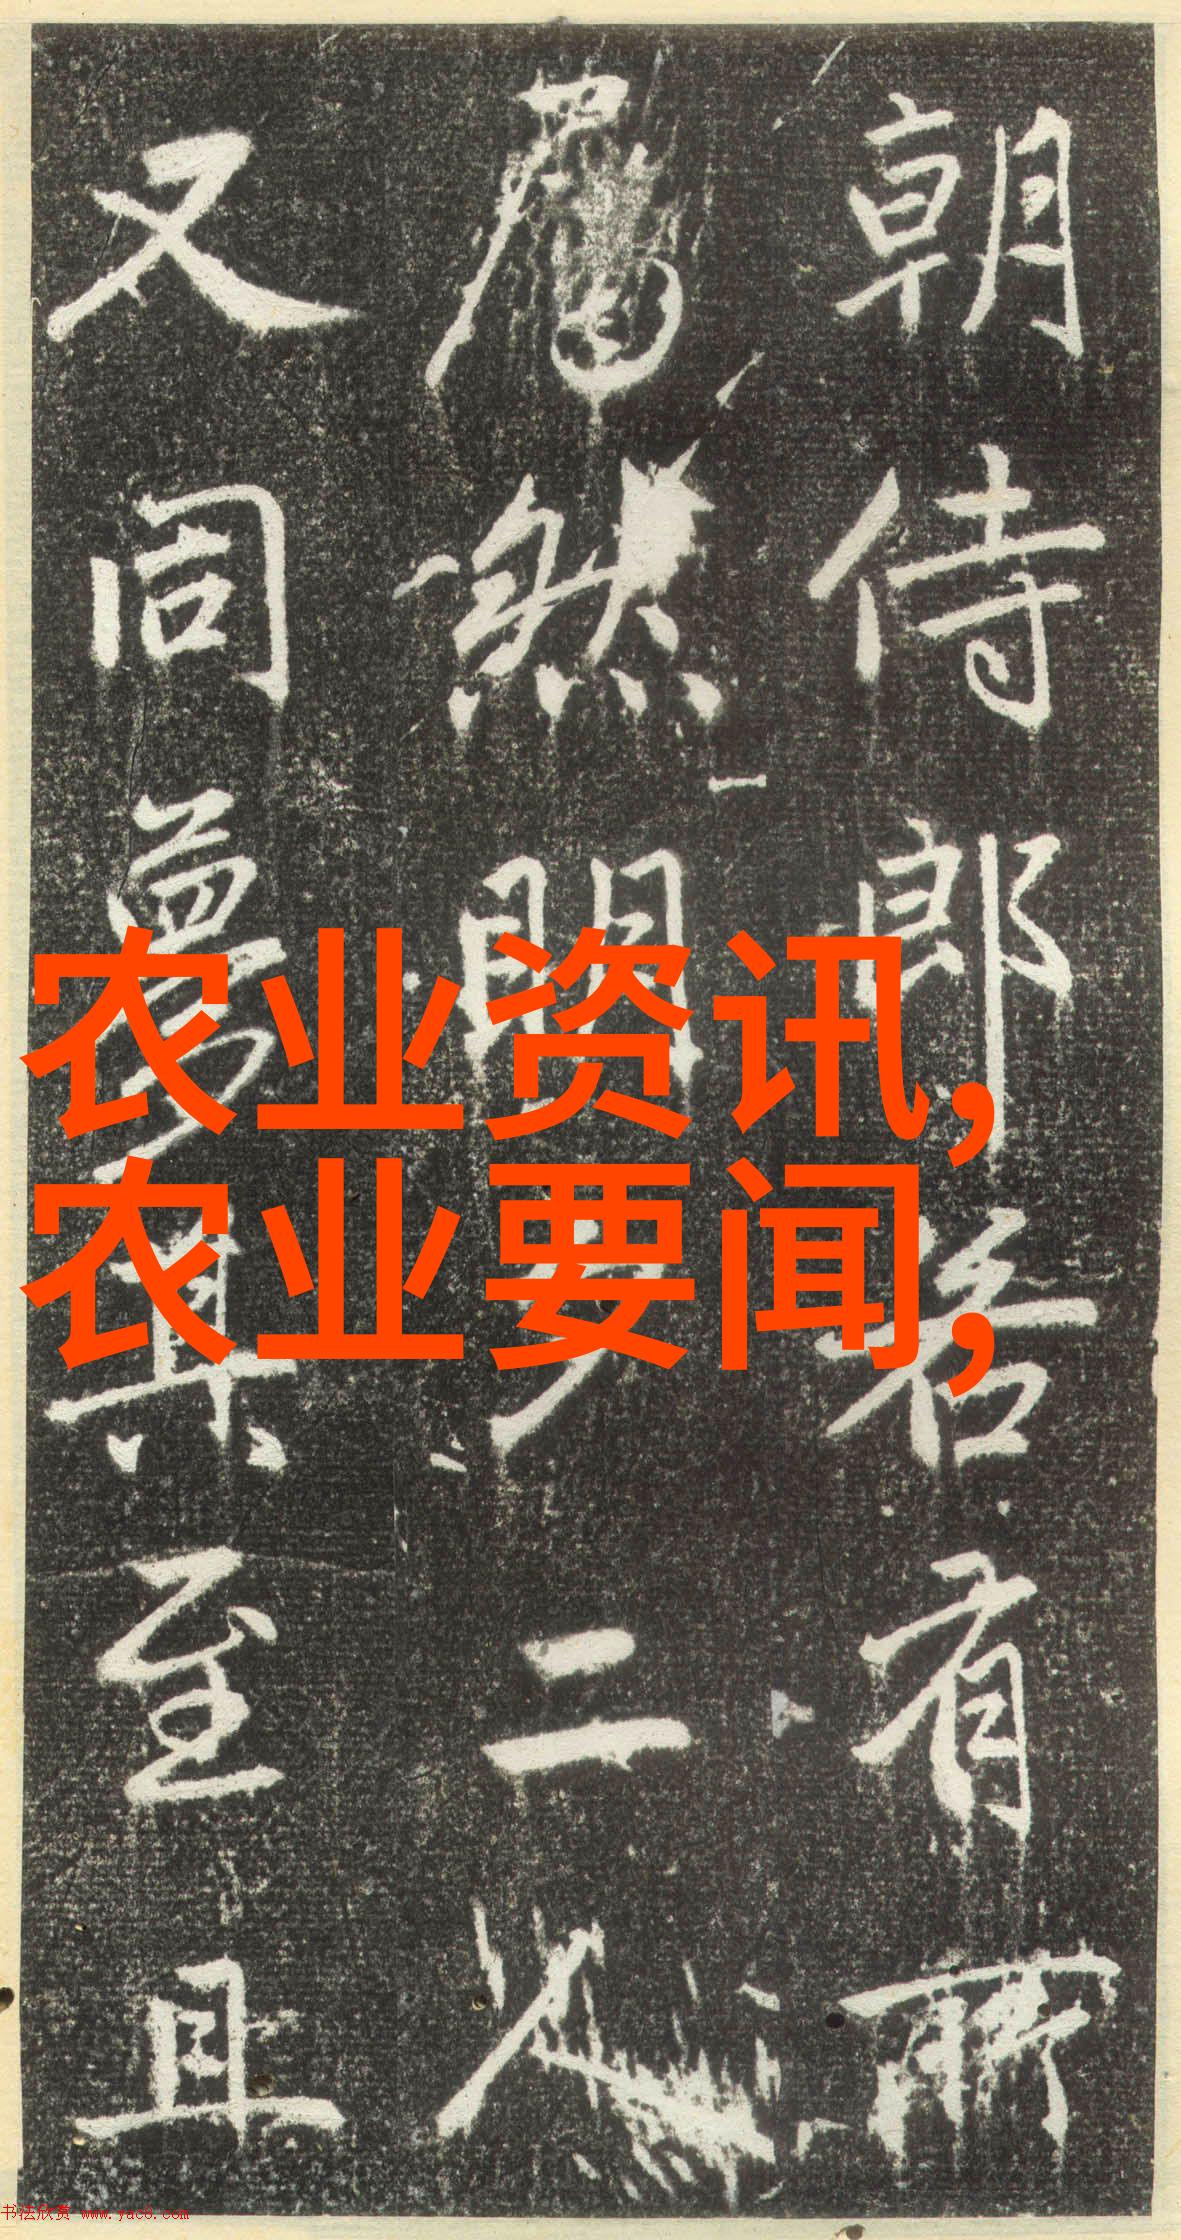 朝侍郎若有所
屬然明夕二人
又同夢其至且
农业资讯,
农业要闻,
书法欣赏 www.yac8.com